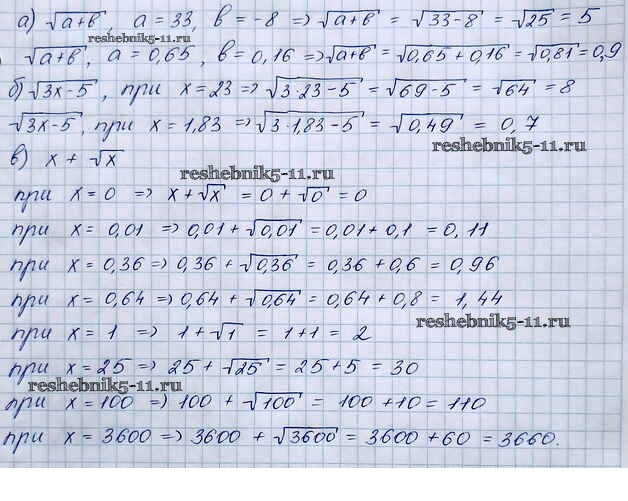 а) √(a+b), a = 33, b = -8 => √(a+b) = √(33-8) = √25 = 5
reshebnik5-11.ru
√(a+b), a = 0,65, b = 0,16 => √(a+b) = √(0,65+0,16) = √0,81 = 0,9
б) √(3x-5), при x = 23 => √(3·23-5) = √(69-5) = √64 = 8
√(3x-5), при x = 1,83 => √(3·1,83-5) = √0,49 = 0,7
reshebnik5-11.ru
в) x + √x
reshebnik5-11.ru
при x = 0 => x + √x = 0 + √0 = 0
при x = 0,01 => 0,01 + √0,01 = 0,01 + 0,1 = 0,11
при x = 0,36 => 0,36 + √0,36 = 0,36 + 0,6 = 0,96
при x = 0,64 => 0,64 + √0,64 = 0,64 + 0,8 = 1,44
reshebnik5-11.ru
при x = 1 => 1 + √1 = 1 + 1 = 2
при x = 25 => 25 + √25 = 25 + 5 = 30
reshebnik5-11.ru
при x = 100 => 100 + √100 = 100 + 10 = 110
при x = 3600 => 3600 + √3600 = 3600 + 60 = 3660.